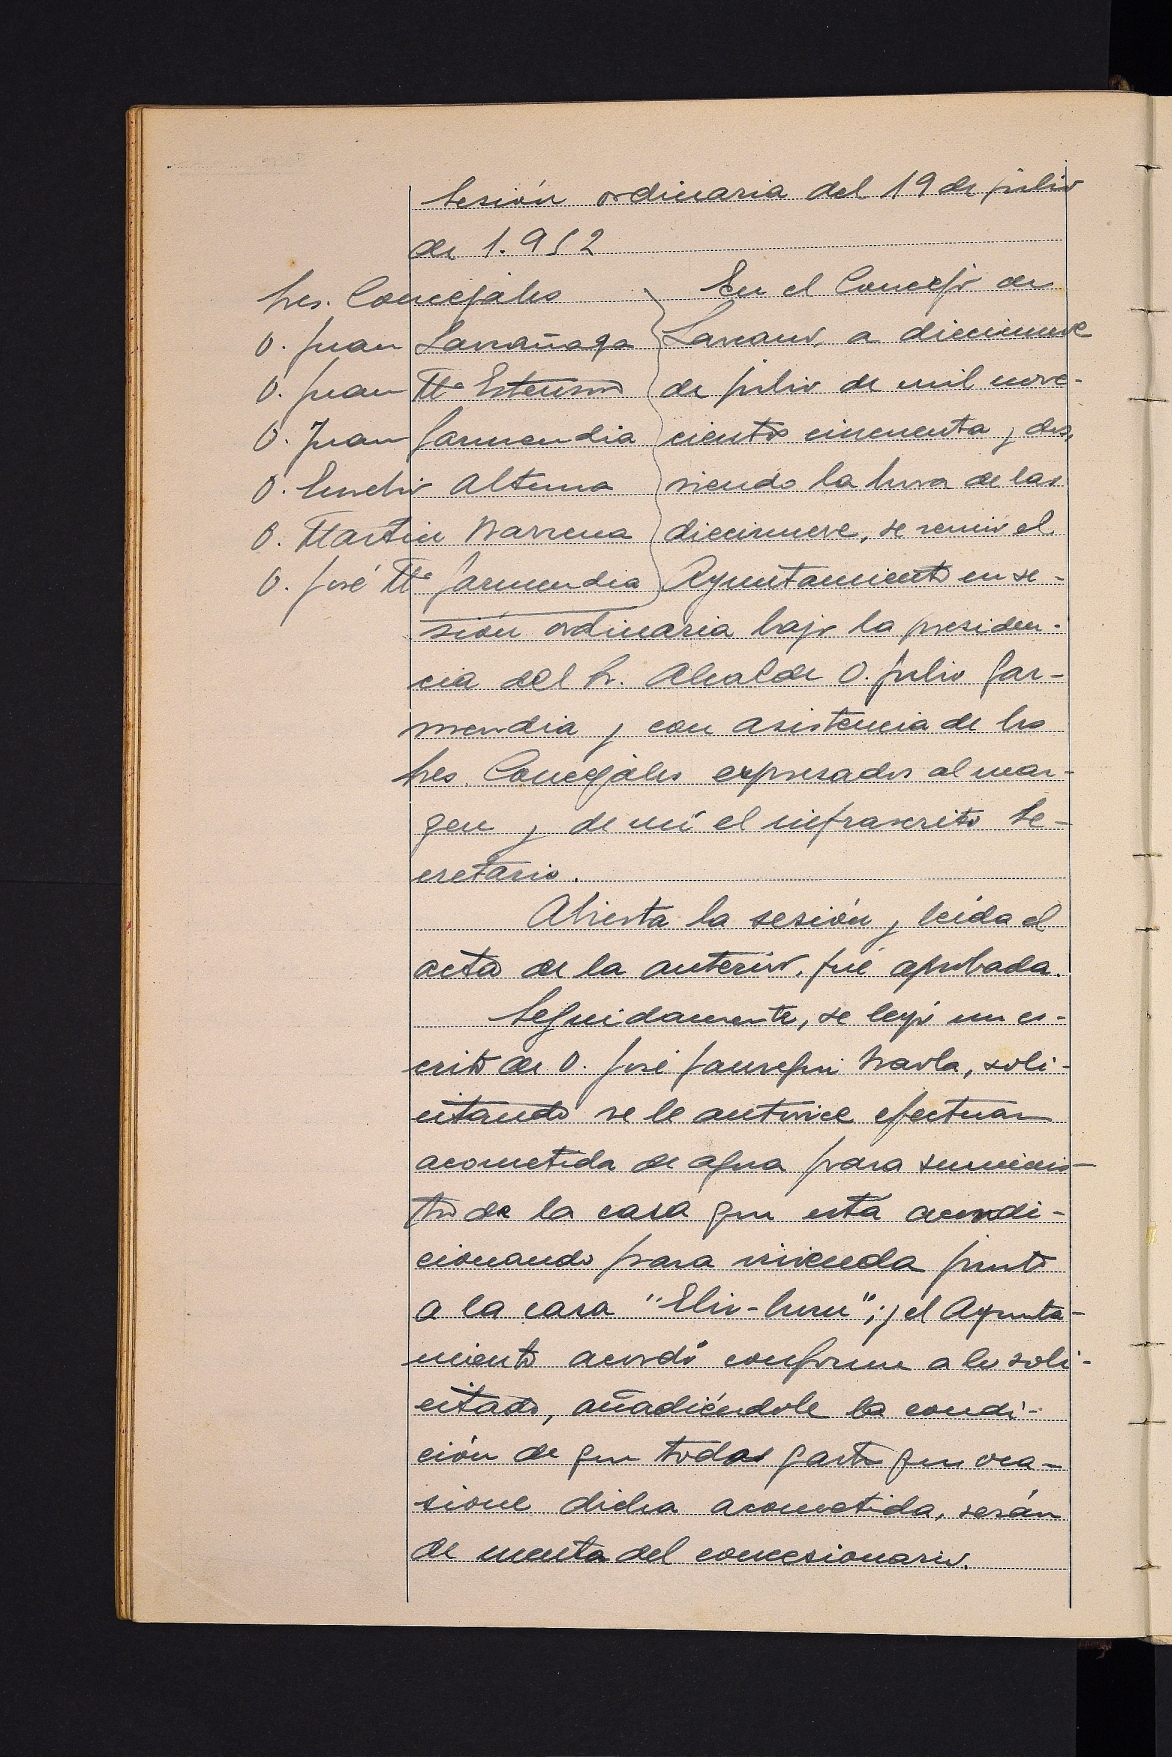 Sesión ordinaria del 19 de julio
de 1.952
Sres. Concejales
D. Juan Larrañaga
D. Juan Mª
D. Juan Garmendia
D. Eusebio Altuna
D. Martin Barrena
D. José Mª Garmendia
En el Concejo de
Larraul, a diecinueve
de julio de mil nove-
cientos cincuenta y dos,
siendo la hora de las
diecinueve, se reunió el
Ayuntamiento en se-
sión ordinaria bajo la presiden-
cia del Sr. Alcalde D. Julio Gar-
mendia y con asistencia de los
Sres. Concejales expresados al mar-
gen y de mí el infrascrito Se-
cretario.
Abierta la sesión y leída el
acta de la anterior, fué aprobada.
Seguidamente, se leyó un es-
crito de D. José Jauregui, soli-
citando se le autorice efectuar
acometida de agua para suminis-
tro de la casa que esta acondi-
cionando para vivienda junto
a la casa "Eliz-buru"; y el Ayunta-
miento acordó conforme a lo soli-
citado, añadiéndole la condi-
ción de que todos gastos que oca-
sione dicha acometida, serán
de cuenta del concesionario.